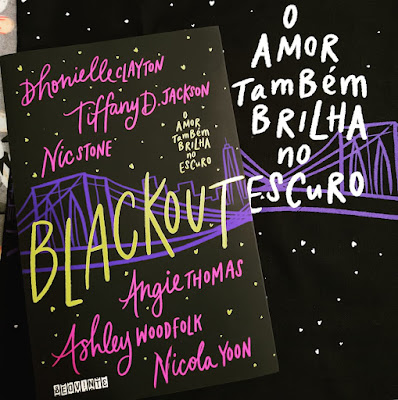 Dhonielle CLAYTON
Tiffany D. JACKSON
Nic STONE
O
AMOR
TAMBÉM
BRILHA
NO
ESCURO
BLACKOUT
Angie THOMAS
Ashley WOODFOLK
Nicola YOON
O
AMOR
TAMBÉM
BRILHA
NO
ESCURO